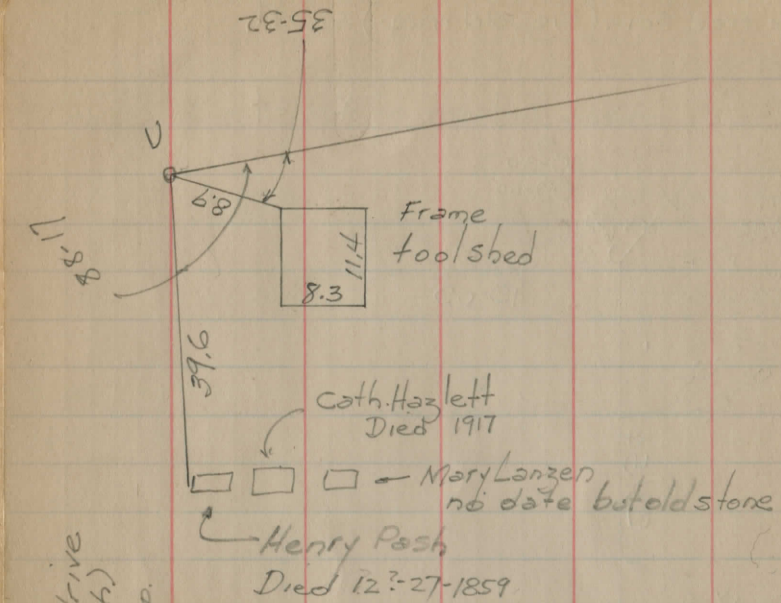 35-32
C
8.9
88-17
Frame
toolshed
11.4
8.3
39.6
Cath. Hazlett
Died 1917
Mary Lanzen
no date but old stone
Henry Pash
Died 12?-27-1859